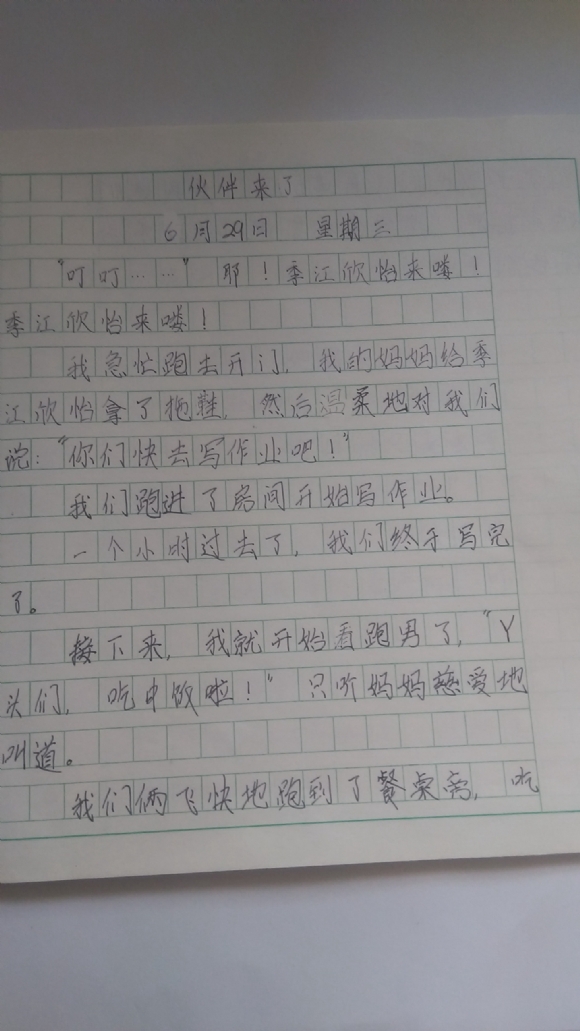 伙伴来了
6月29日 星期三
“叮叮……”耶！季江欣怡来喽！
季江欣怡来喽！
我急忙跑去开门，我的妈妈给季
江欣怡拿了拖鞋，然后温柔地对我们
说：“你们快去写作业吧！”
我们跑进了房间开始写作业。
一个小时过去了，我们终于写完
了。
接下来，我就开始看跑男了，“丫
头们，吃中饭啦！”只听妈妈慈爱地
叫道。
我们俩飞快地跑到了餐桌旁，吃